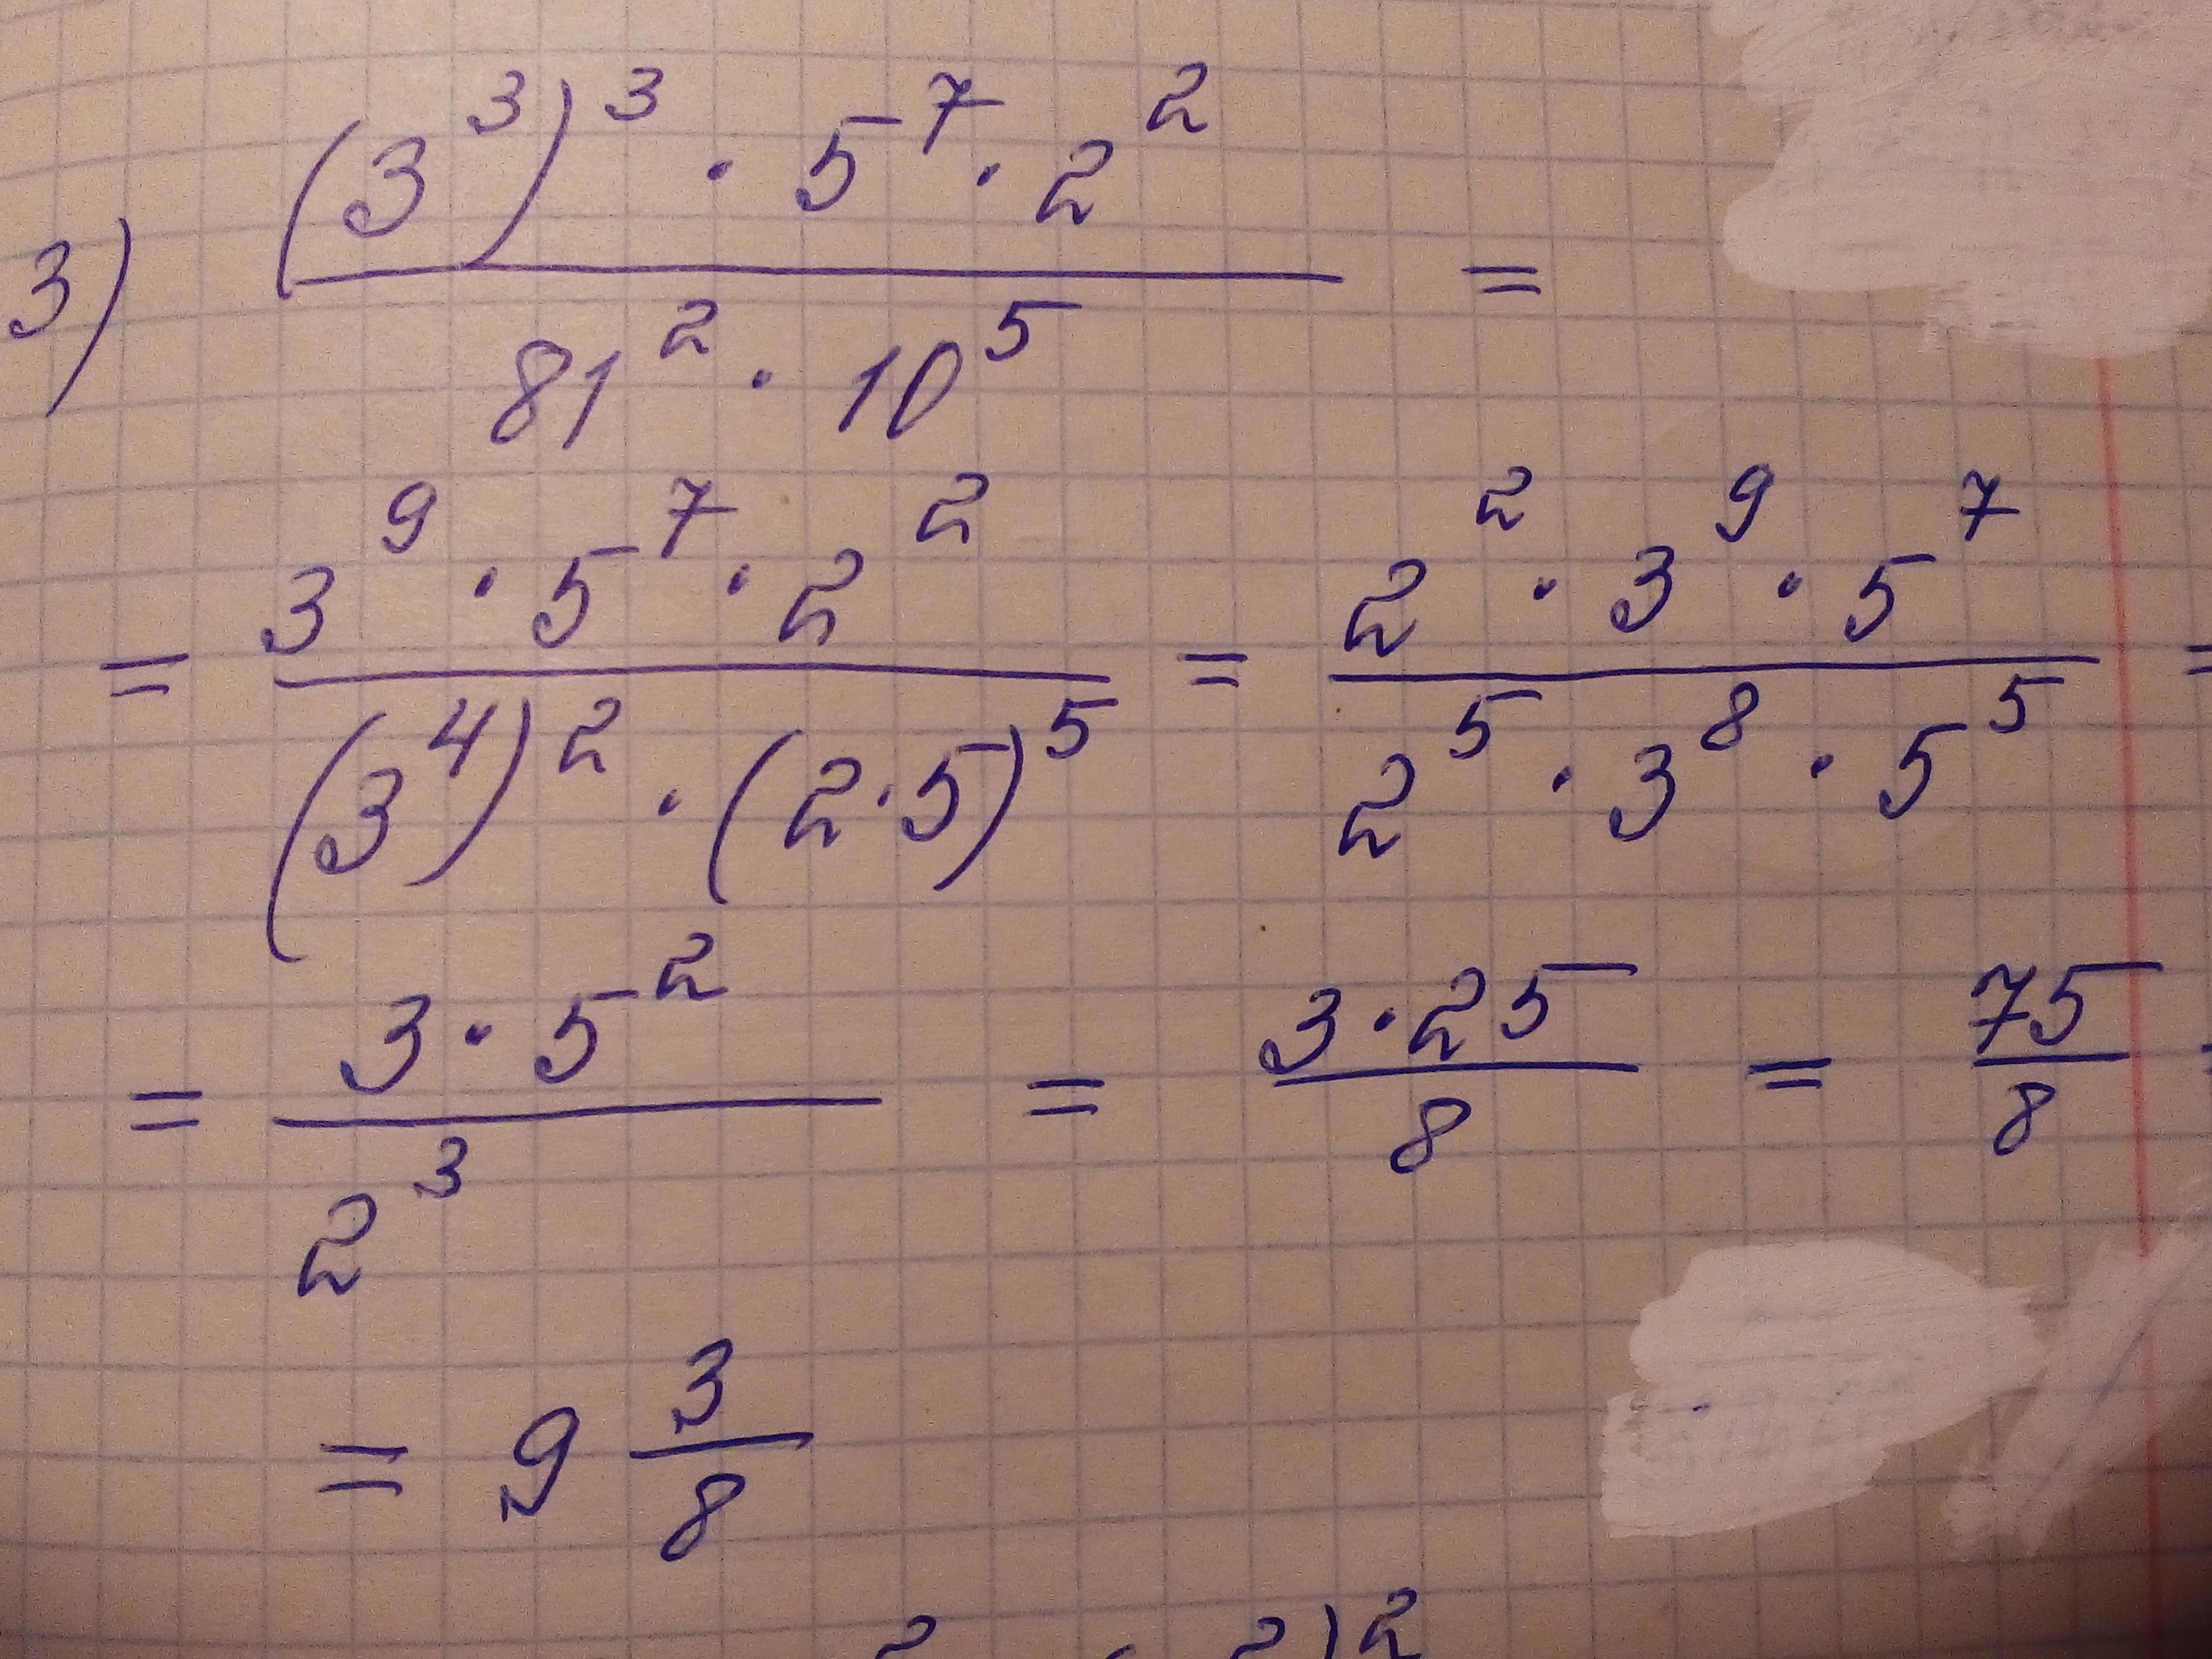 3) \frac{(3^3)^3 \cdot 5^7 \cdot 2^2}{81^2 \cdot 10^5} =
= \frac{3^9 \cdot 5^7 \cdot 2^2}{(3^4)^2 \cdot (2 \cdot 5)^5} = \frac{2^2 \cdot 3^9 \cdot 5^7}{2^5 \cdot 3^8 \cdot 5^5} =
= \frac{3 \cdot 5^2}{2^3} = \frac{3 \cdot 25}{8} = \frac{75}{8} =
= 9 \frac{3}{8}